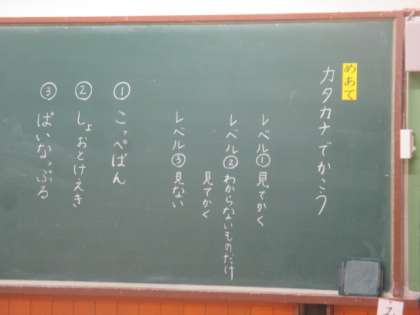 めあて
カタカナでかこう
レベル①見てかく
レベル②わからないものだけ
見てかく
レベル③見ない
①こっぺぱん
②しょおとけえき
③ぱいなっぷる